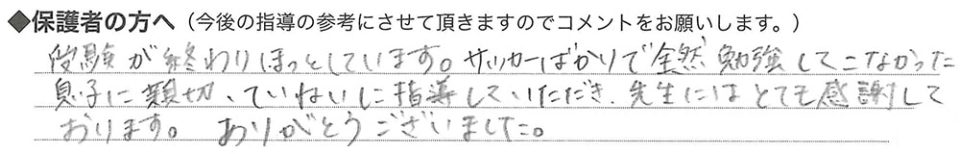 ◆保護者の方へ（今後の指導の参考にさせて頂きますのでコメントをお願いします。）
受験が終わりほっとしています。サッカーばかりで全然勉強してこなかった
息子に親切、ていねいに指導していただき、先生にはとても感謝して
おります。ありがとうございました。